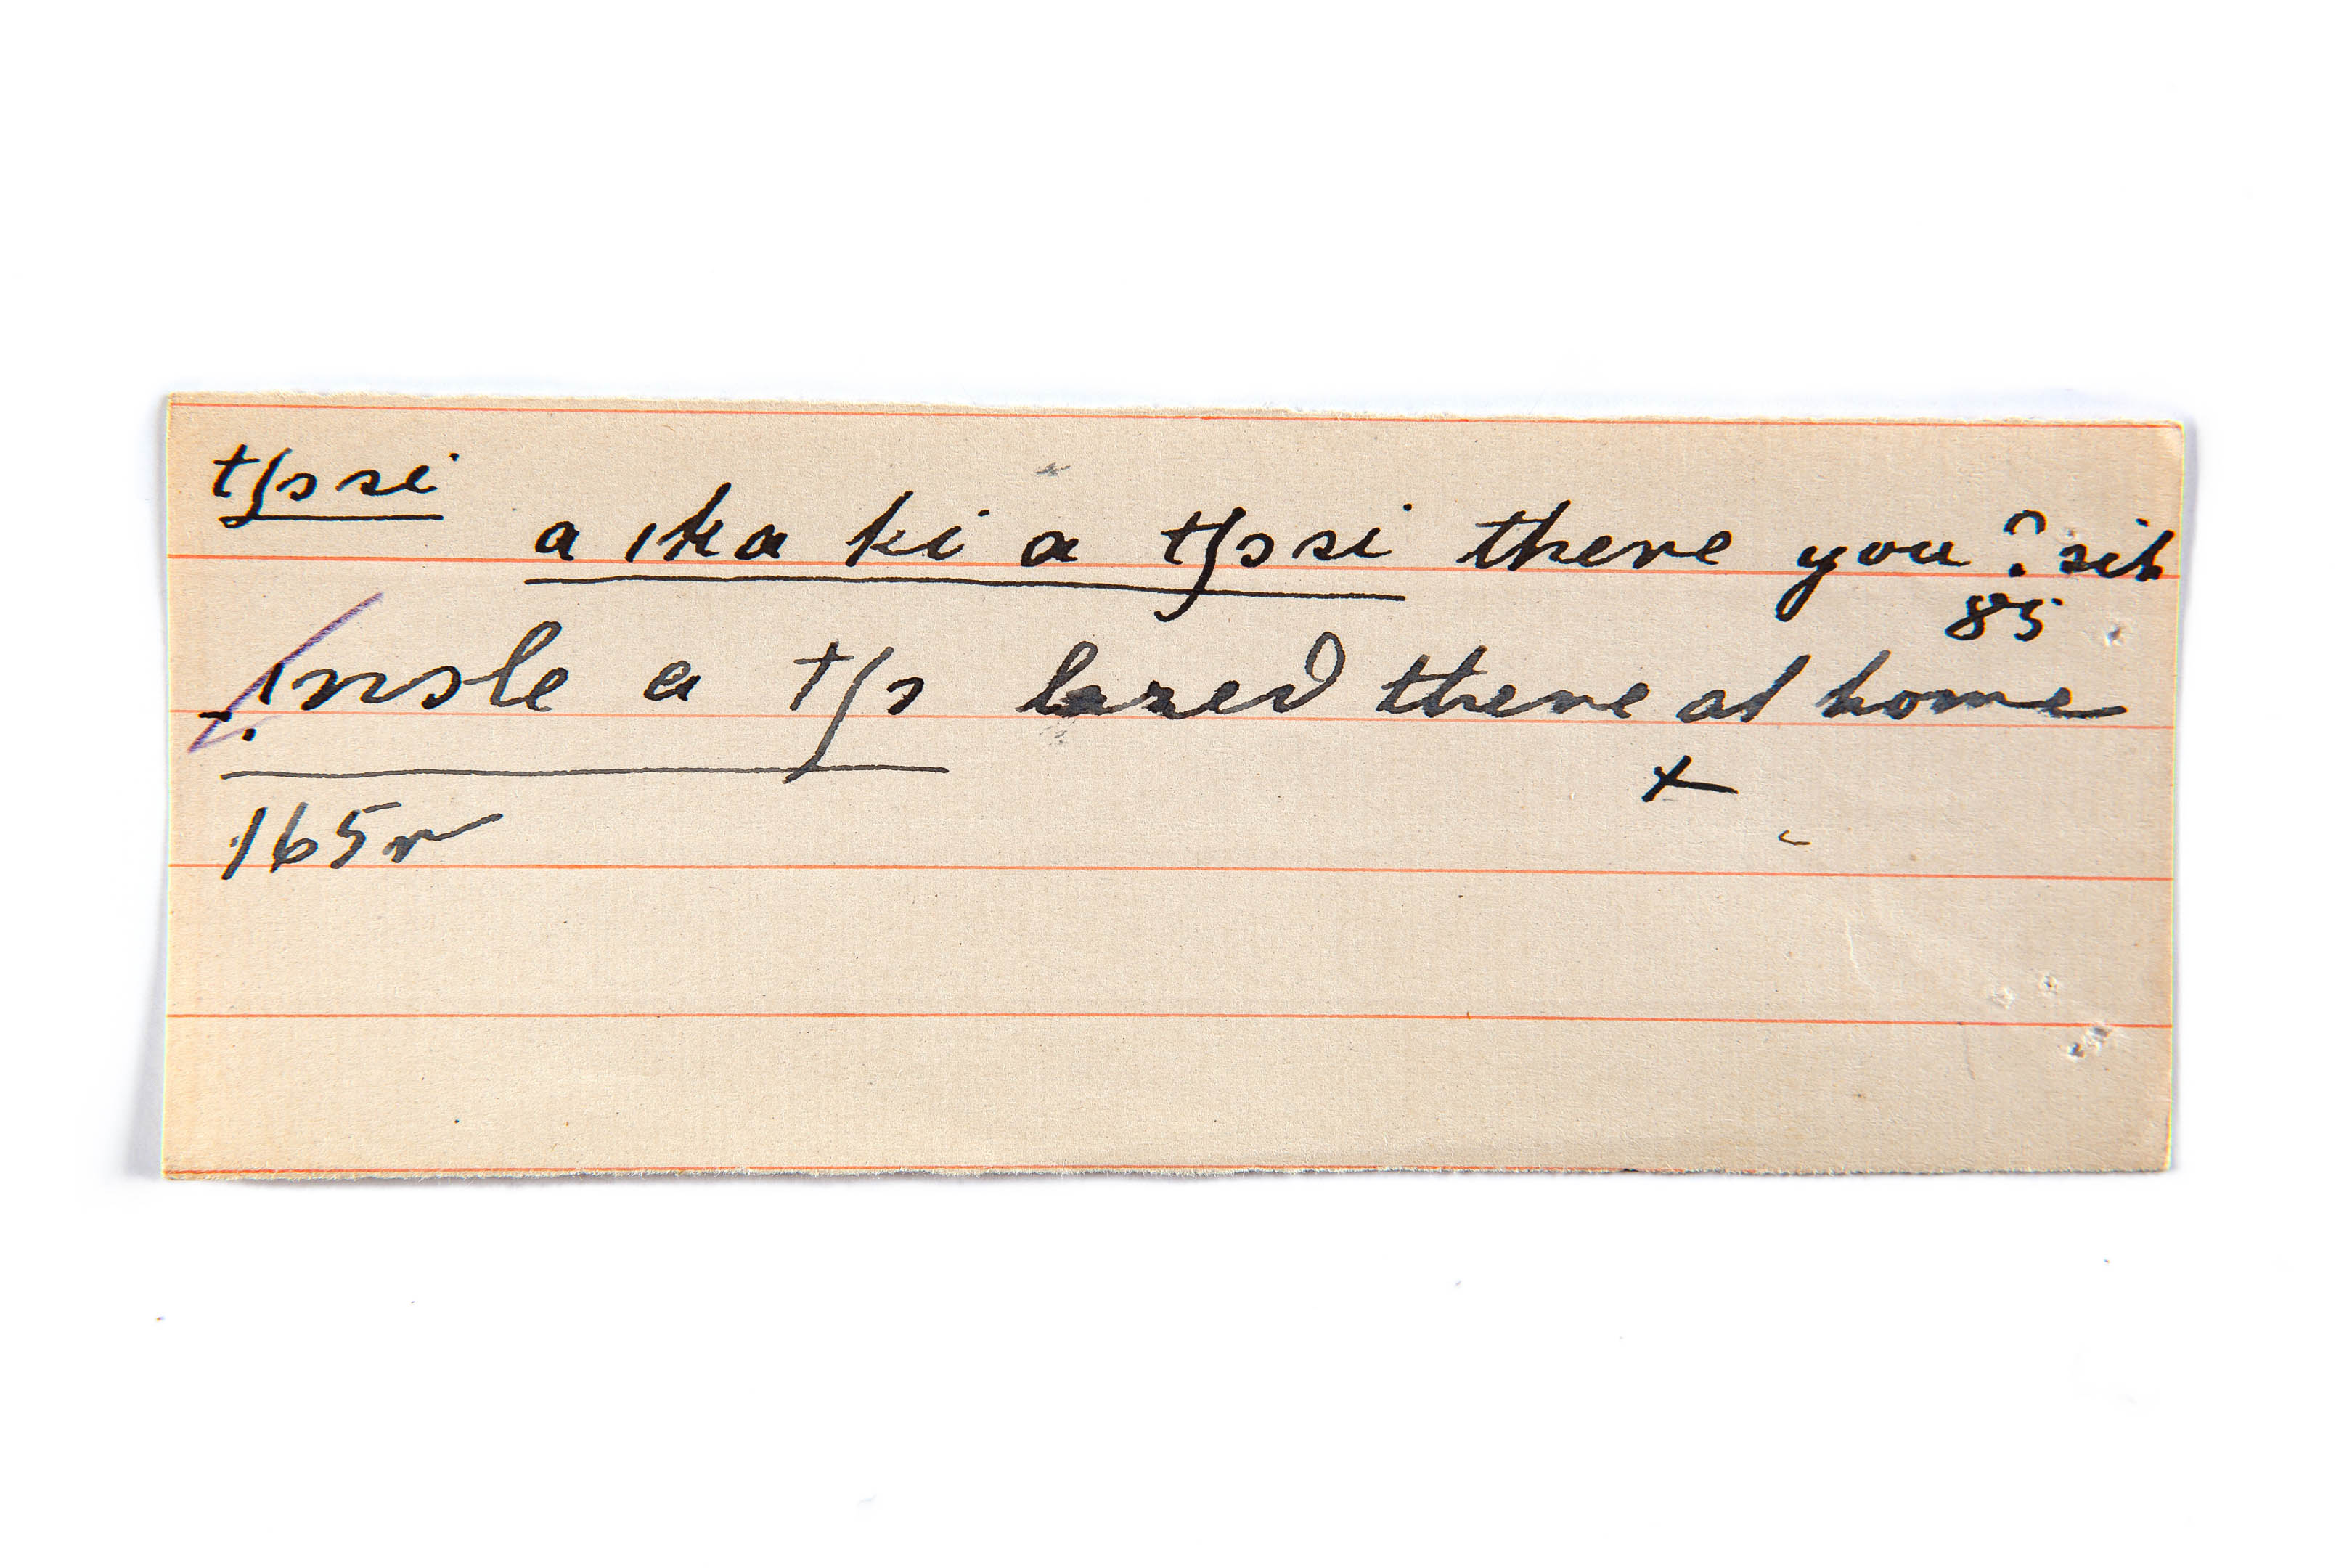 tʃɔsi
a ıka ki a tʃɔsi there you ? sit
85
a tʃɔ lazed there at home
165r